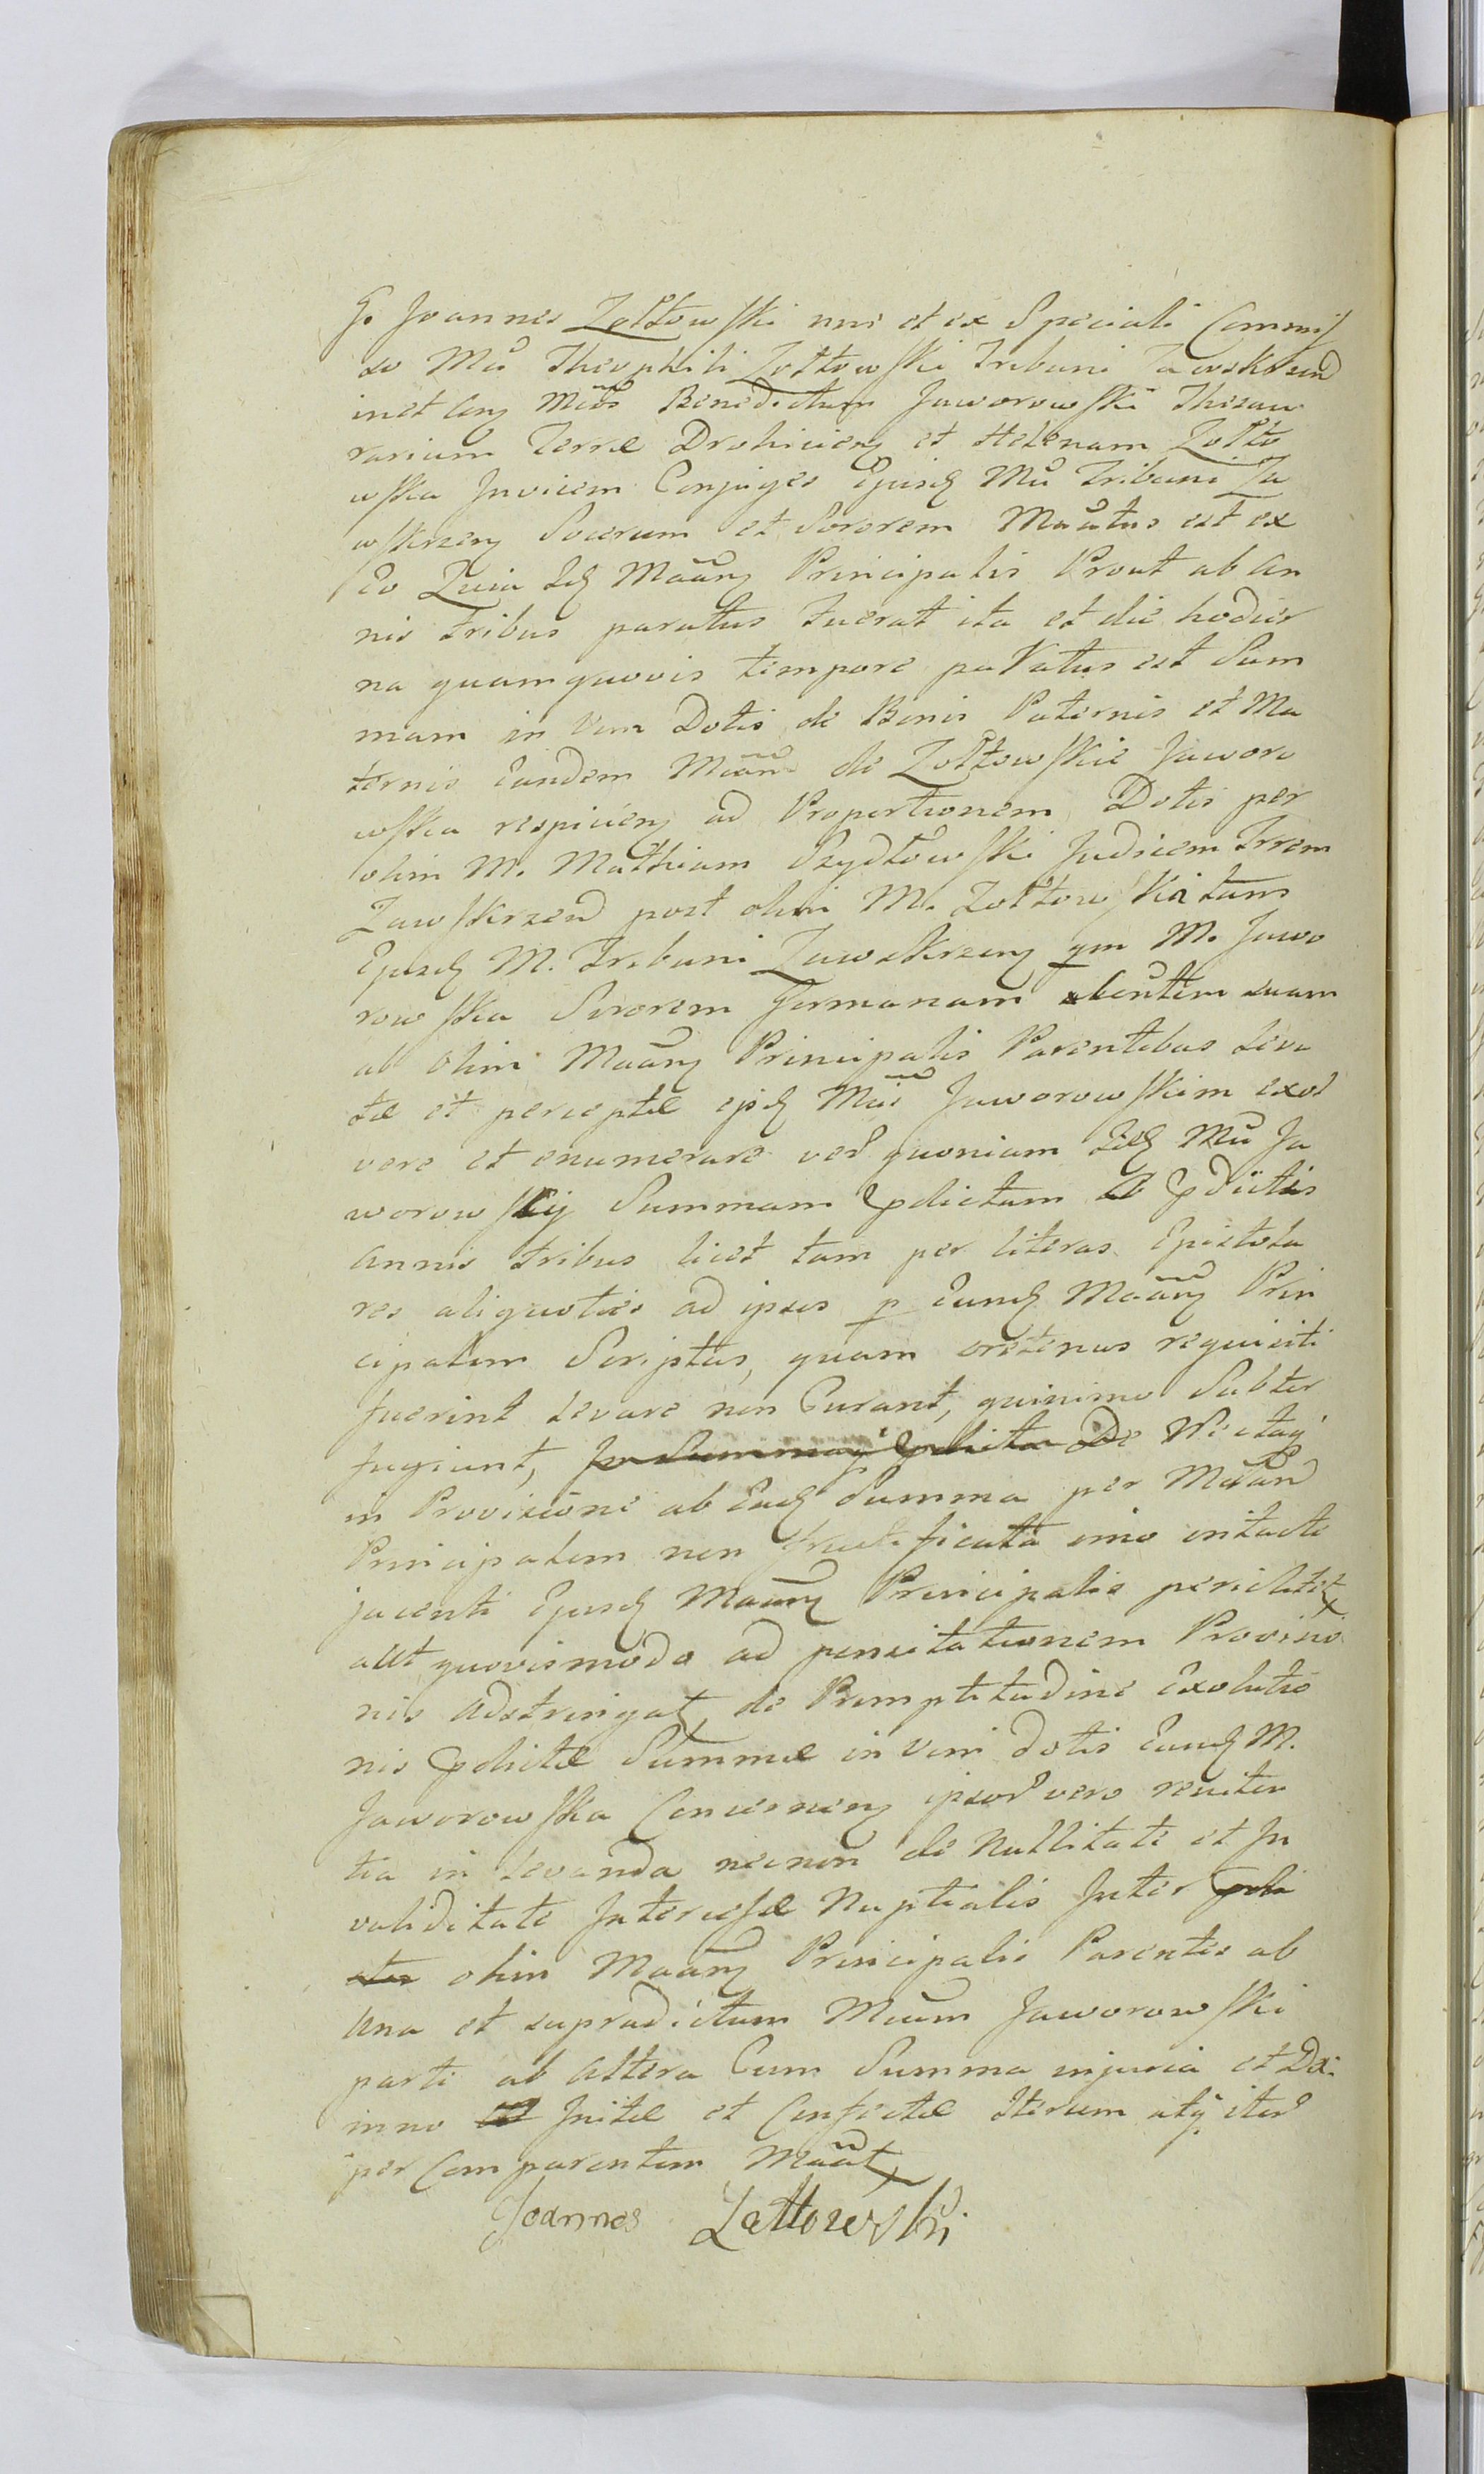 G. Joannes Zołtowski nne et ex Speciali Commis
so Mci Theophili Zołtowski Tribuni Zawskrzend
inst any Micos Benedictum Jaworowski Thesau
rarium Terræ Drohicien et Helenam Zołto
wska Invicem Conjuges Ejusd Mci Tribuni Za
wskrzen Socerum et Sororem Manatus est ex
Eo Quia Id Maan Principalis Prout ab An
nis tribus paratus fuerat ita et die hodier
na quamquovis tempore paratus est Sum
mam in Vim Dotis de Bonis Paternis et Ma
ternis Eandem Mcan de Zołtowskie Jaworo
wska respicien ad Proportionem Dotis per
olim M. Mathiam Szydłowski Judicem Trrem
Zawskrzend post olim M. Zołtowska tam
Ejusd M. Tribuni Zawskrzen qm M. Jawo
rowska Sororem Germanam suam
ab olim Maan Principalis Parentibus leva
tæ et perceptæ ejsd Mci Jaworowskim exol
vere et enumerare ver quoniam Iid Mci Ja
worowscy Summam pdictam a pdictis
annis tribus licet tam per literas Epistola
res aliquoties ad ipsos p Eund Maan Prin
cipalem Scriptas, quam oretenus requisiti
fuerint levare non Curant, quinimo Subter
fugiunt, In Summam pdicta De Ne itaq
in Provisione ab Ead Summa per Maan
Principalem non fructificata imo intacte
jacenti Ejusd Maan Principalis periclitet
aut quovismodo ad pensitationem Provisio
nis adstringat, de Promptitudine Exolutio
nis pdictæ Summæ in Vim dotis Eand M.
Jaworowska Concernen ipsor vero reniten
tia in levanda necnon de Nullitate et In
validitate Intercisæ Nuptialis Inter pdi
ctos olim Maan Principalis Parentes ab
Una et supradictum Mcum Jaworowski
parte ab altera Cum Summa injuria et Da
mno Initæ et Confectæ Iterum atq iter
per Comparentem Maat
Joannes Zołtowski